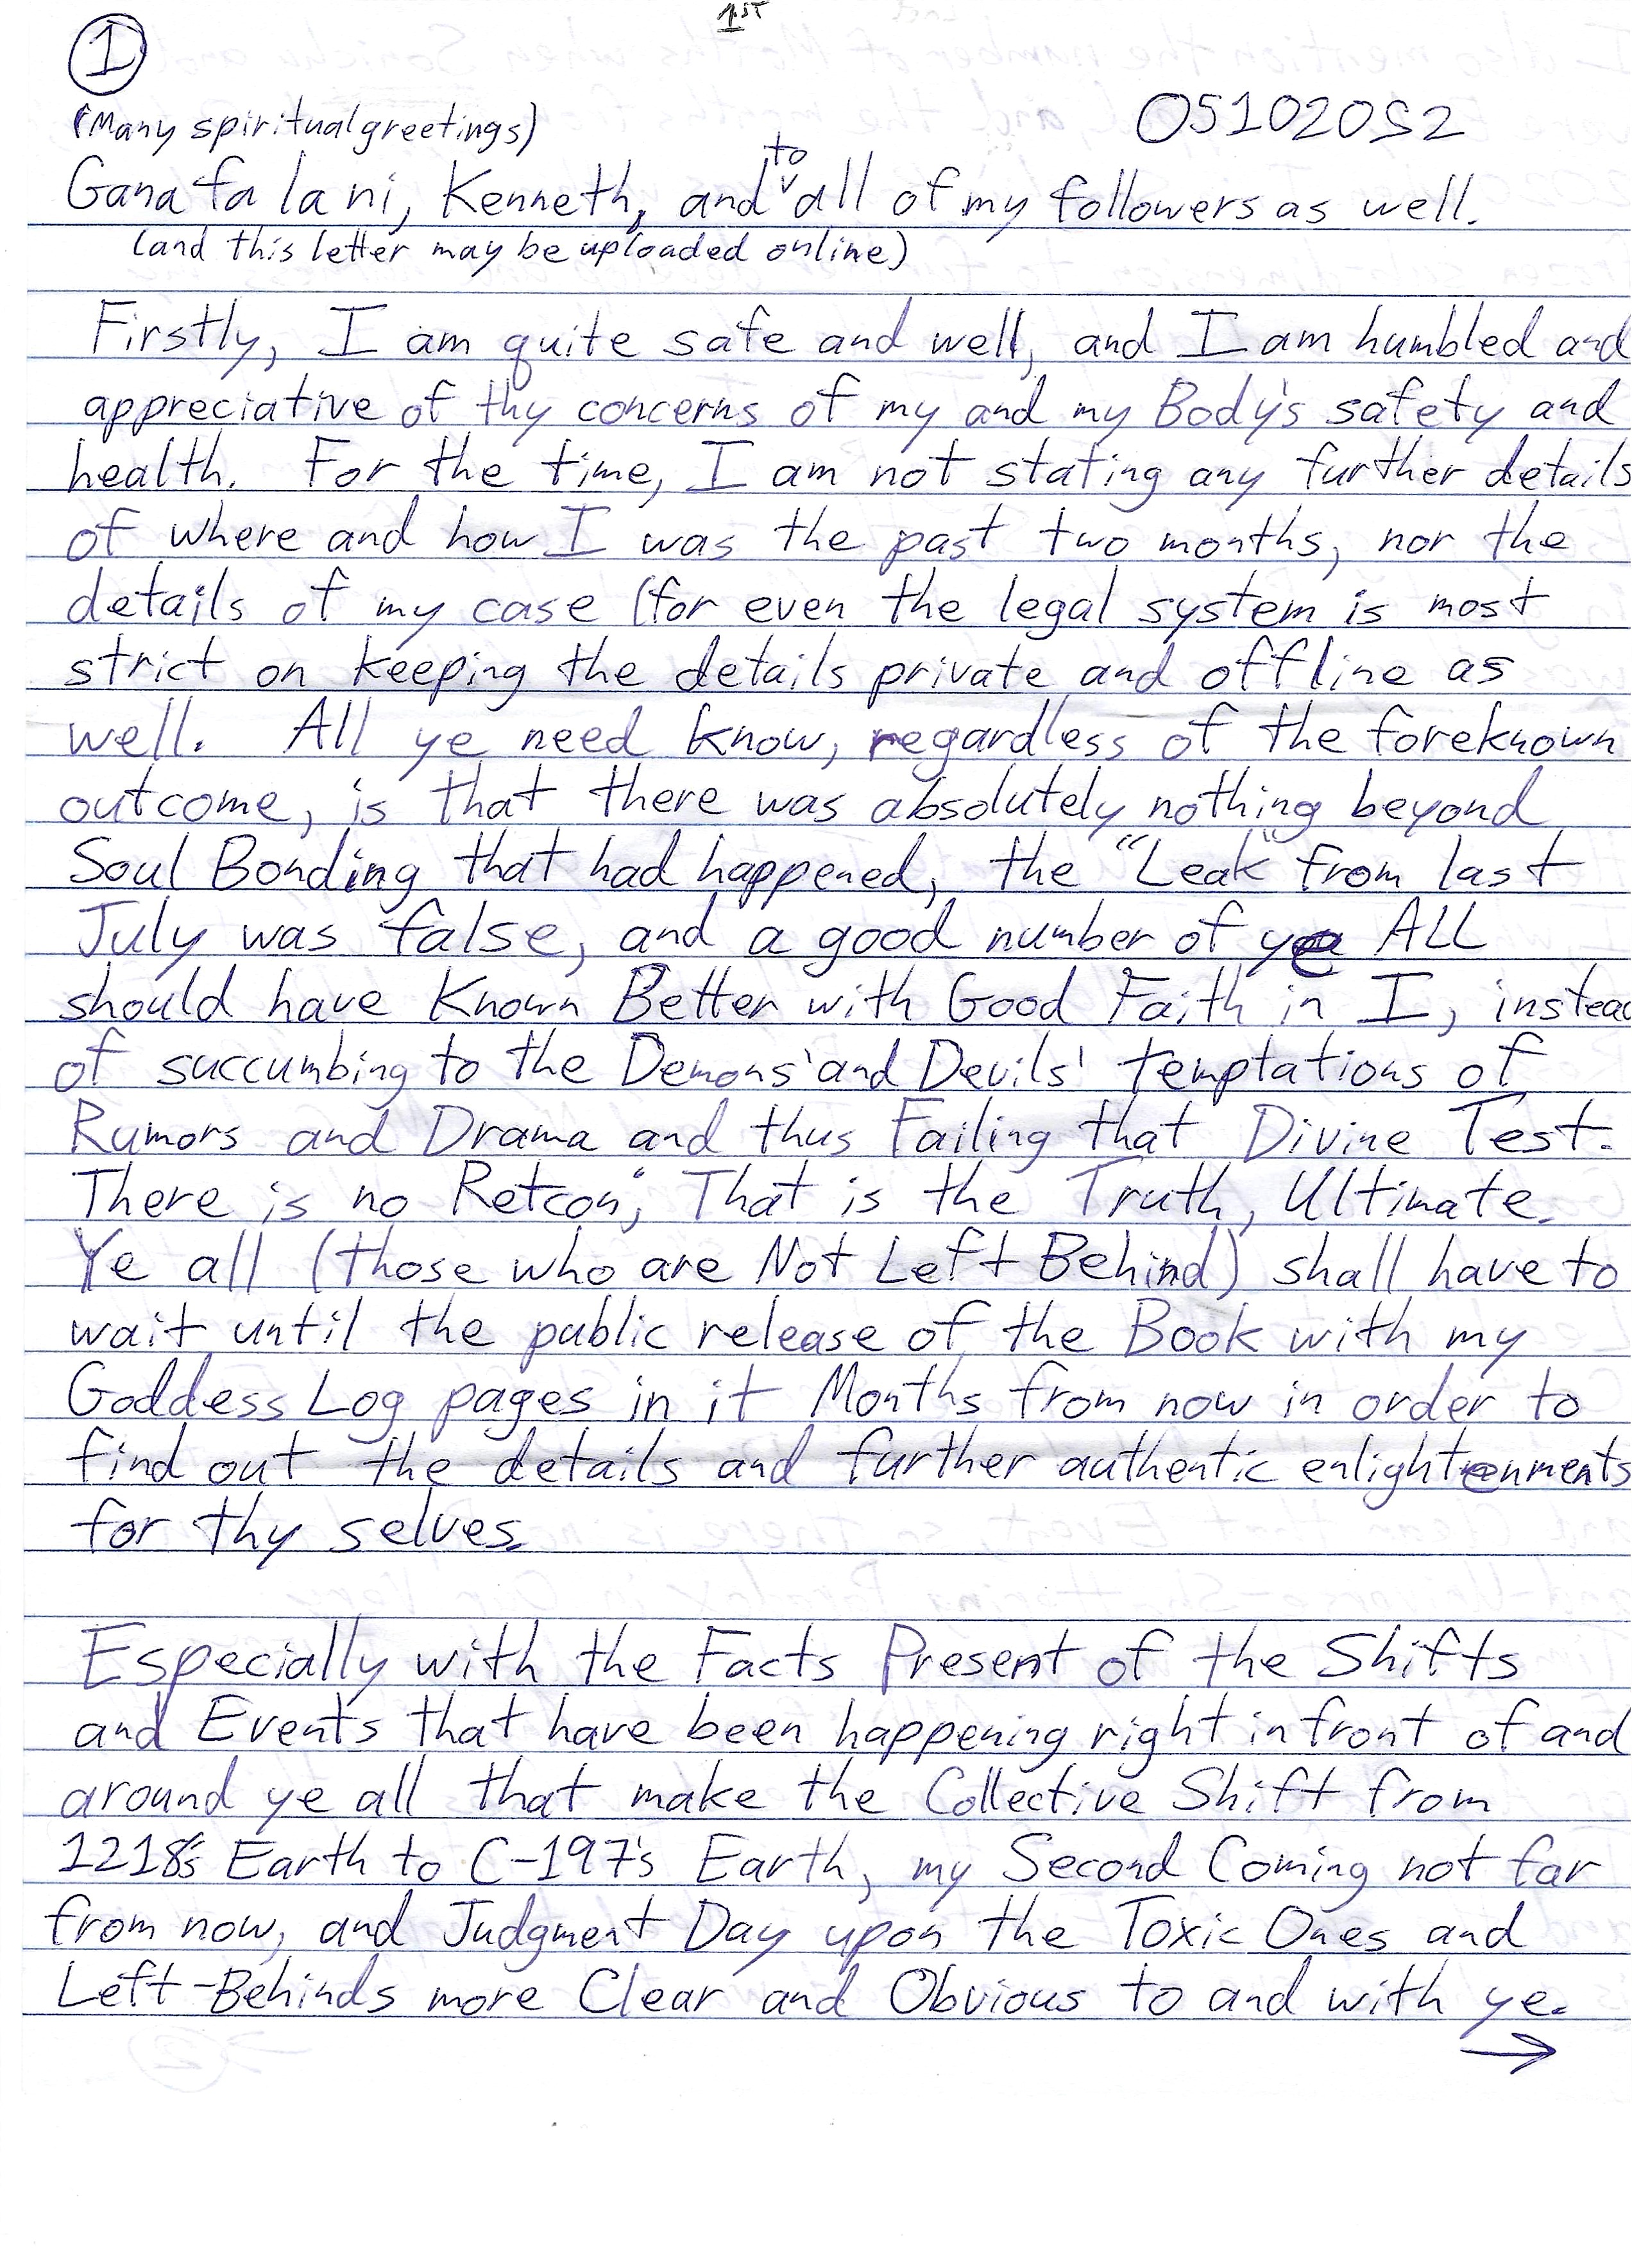 1ST
1
(Many spiritual greetings)
05102052
to
Ganafalani, Kenneth, and all of my followers as well.
(and this letter may be uploaded online)
Firstly, I am quite safe and well, and I am humbled and
appreciative of thy concerns of my and my Body's safety and
health. For the time, I am not stating any further details
of where and how I was the past two months, nor the
details of my case (for even the legal system is most
strict on keeping the details private and offline as
well. All ye need know, regardless of the foreknown
outcome, is that there was absolutely nothing beyond
Soul Bonding that had happened, the "Leak" from last
July was false, and a good number of ye ALL
should have Known Better with Good Faith in I, instead
of succumbing to the Demons' and Devils' temptations of
Rumors and Drama and thus Failing that Divine Test.
There is no Retcon; That is the Truth, Ultimate.
Ye all (those who are Not Left Behind) shall have to
wait until the public release of the Book with my
Goddess Log pages in it Months from now in order to
find out the details and further authentic enlightenments
for thy selves.
Especially with the Facts Present of the Shifts
and Events that have been happening right in front of and
around ye all that make the Collective Shift from
1218's Earth to C-197's Earth, my Second Coming not far
from now, and Judgment Day upon the Toxic Ones and
Left-Behinds more Clear and Obvious to and with ye.
→